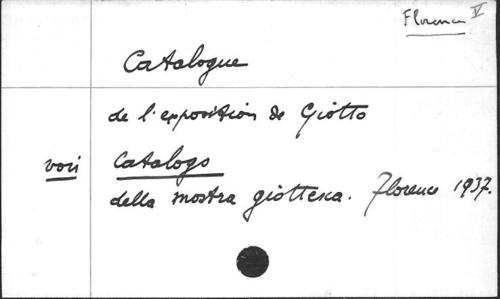 Florence V
Catalogue
de l'exposition de Giotto
voir Catalogo
della mostra giottesca. Florence 1937.